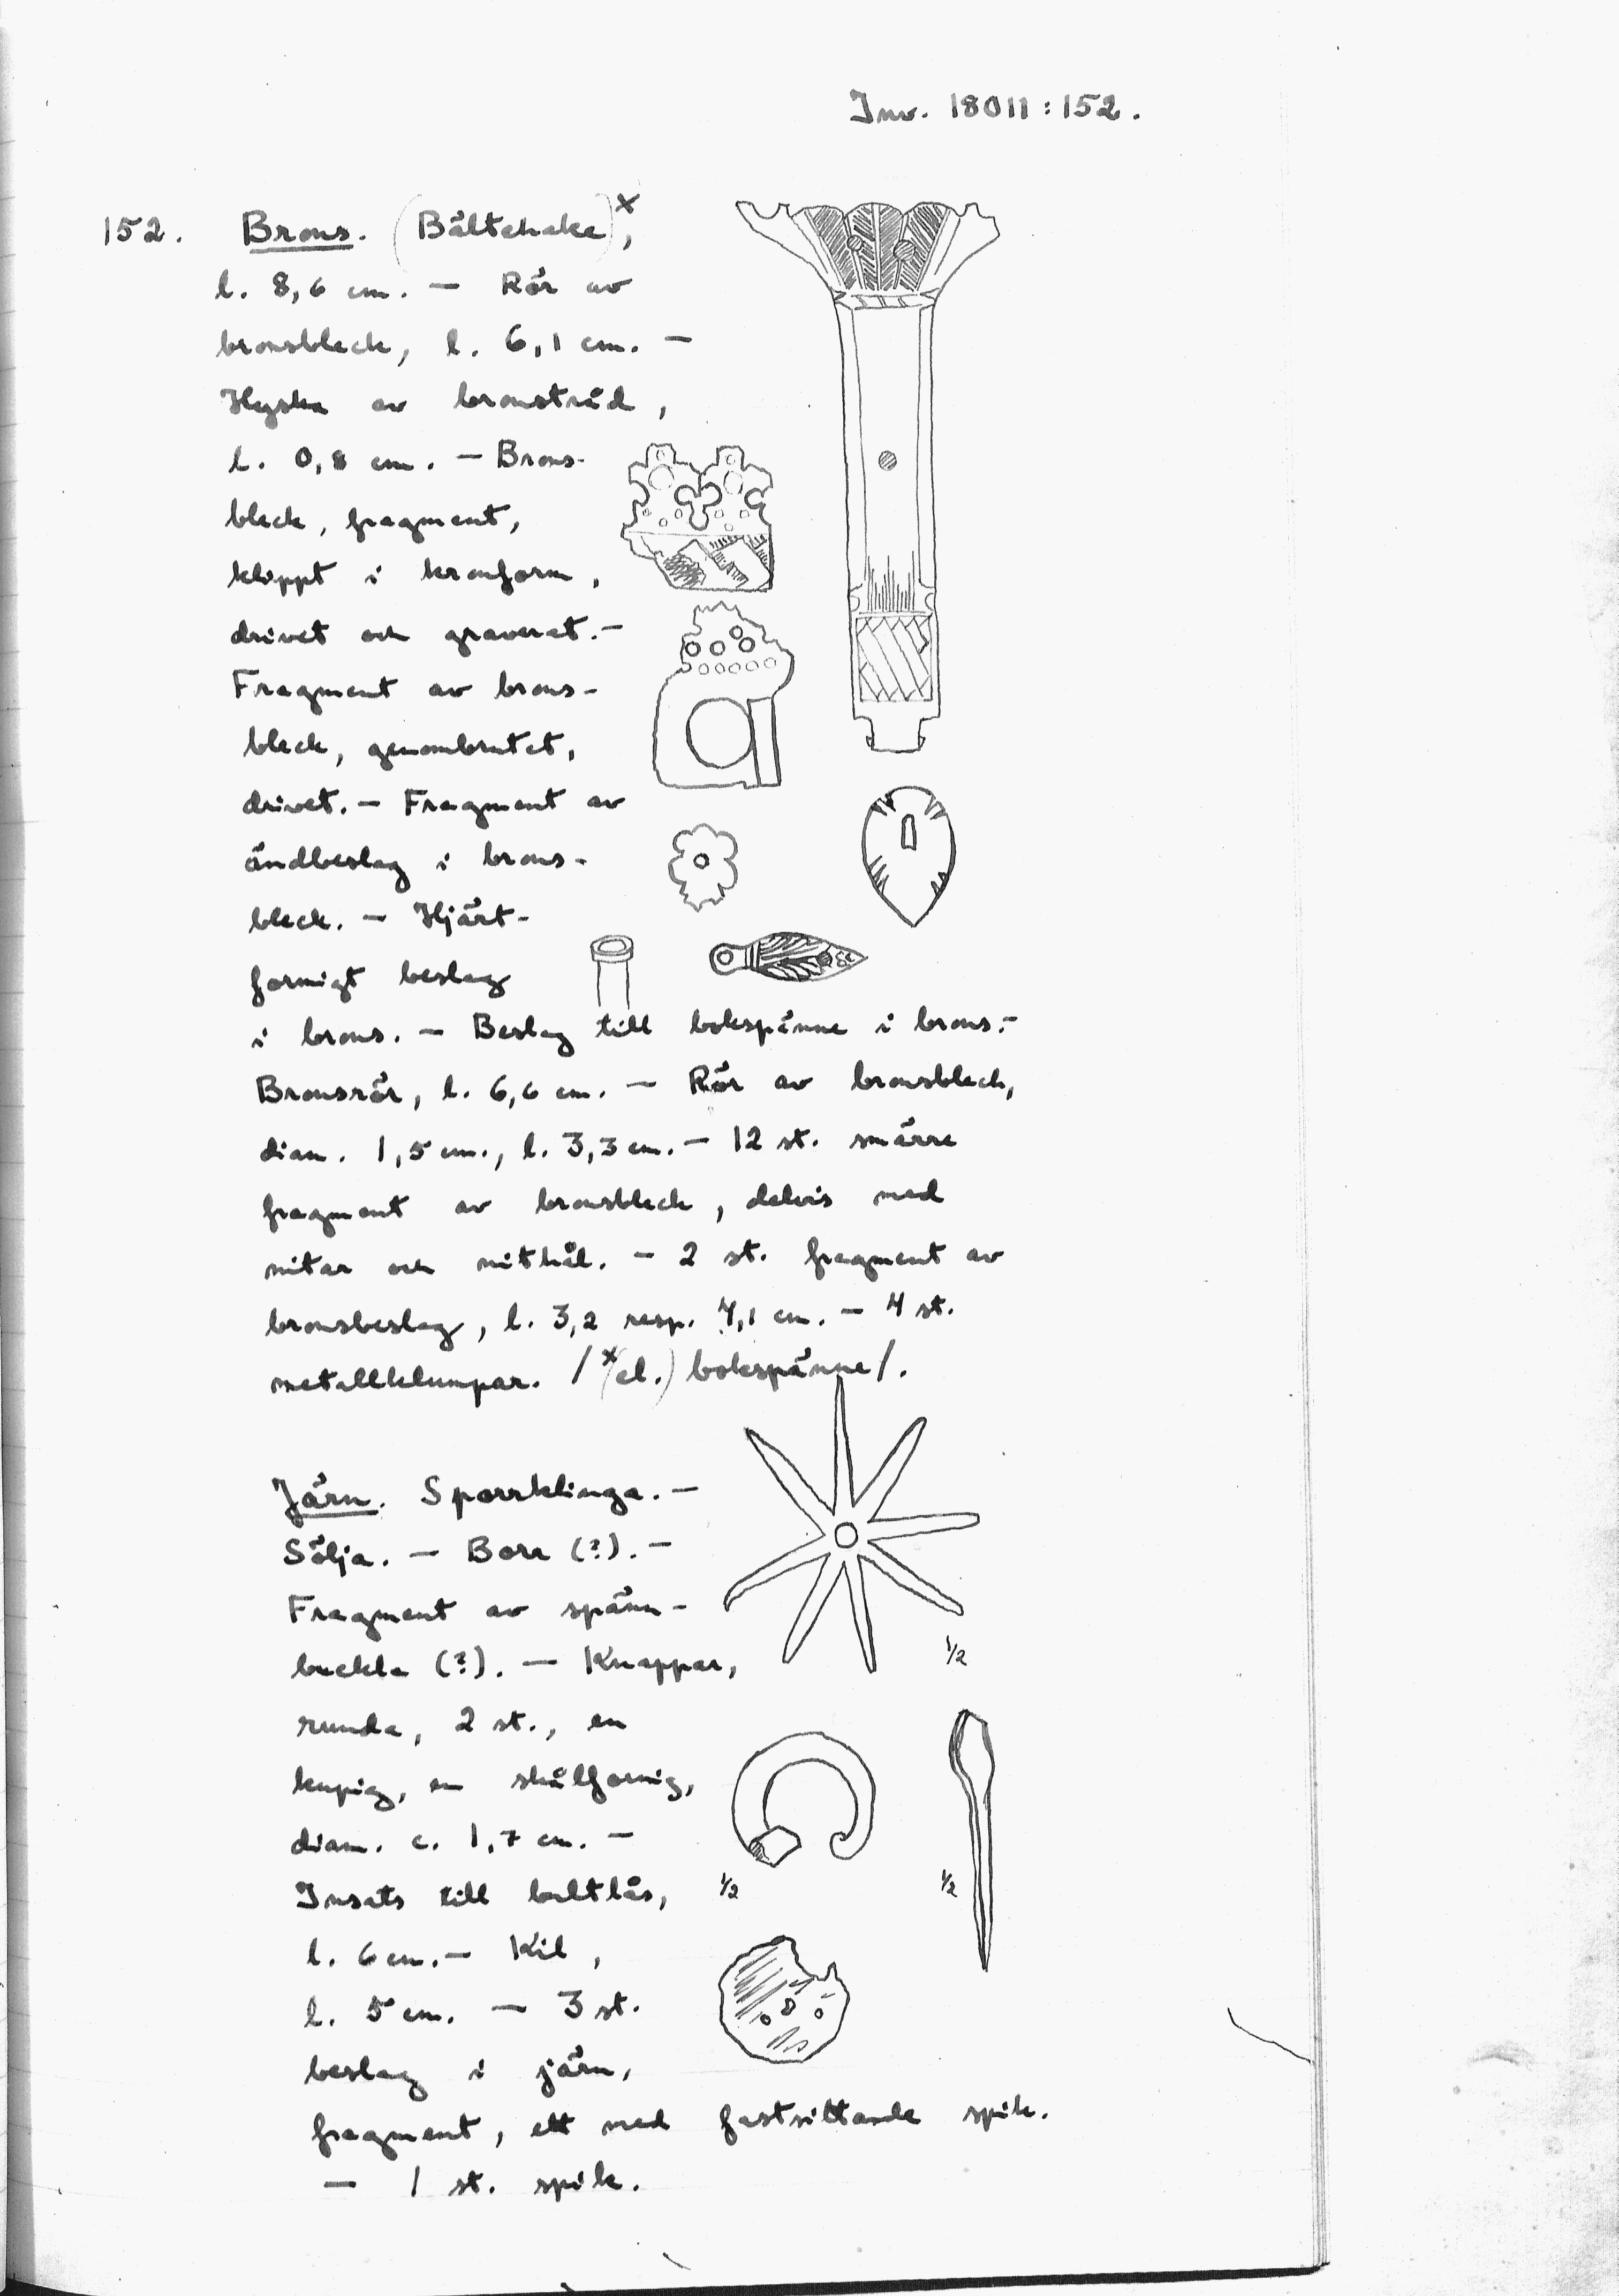 Inv. 18011:152.
152. Brons. (Bältehake)x,
l. 8,6 cm. — Rör av
bronsbleck, l. 6,1 cm. —
Hyska av bronstråd,
l. 0,8 cm. — Brons-
bleck, fragment,
klippt i kronform,
drivet och graverat. —
Fragment av brons-
bleck, genombrutet,
drivet. — Fragment av
ändbeslag i brons-
bleck. — Hjärt-
formigt beslag
i brons. — Beslag till bokspänne i brons. —
Bronsrör, l. 6,6 cm. — Rör av bronsbleck,
diam. 1,5 cm., l. 3,3 cm. — 12 st. smärre
fragment av bronsbleck, delvis med
nitar och nithål. — 2 st. fragment av
bronsbeslag, l. 3,2 resp. 4,1 cm. — 4 st.
metallklumpar. /x(el.) bokspänne/.
Järn. Sporrklinga. —
Sölja. — Borr (?). —
Fragment av spänn-
buckla (?). — Knappar,
1/2
runda, 2 st., en
kupig, en skålformig,
diam. c. 1,7 cm. —
Insats till bultlås,
1/2
1/2
l. 6 cm. — Kil,
l. 5 cm. — 3 st.
beslag i järn,
fragment, ett med fastsittande spik.
— 1 st. spik.